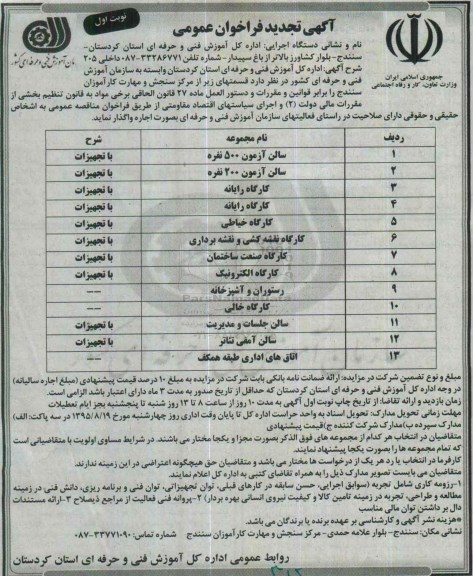 نوبت اول
آگهی تجدید فراخوان عمومی
جمهوری اسلامی ایران
وزارت تعاون، کار و رفاه اجتماعی
نام و نشانی دستگاه اجرایی: اداره کل آموزش فنی و حرفه ای استان کردستان-
سنندج - بلوار کشاورز بالاتر از باغ سپیدار - شماره تلفن ۳۳۲۸۶۷۷۱-۰۸۷ داخلی ۲۰۵
شرح آگهی: اداره کل آموزش فنی و حرفه ای استان کردستان وابسته به سازمان آموزش
فنی و حرفه ای کشور در نظر دارد قسمتهای زیر از مرکز سنجش و مهارت کارآموزان
سنندج را برابر قوانین و مقررات و دستور العمل ماده ۲۷ قانون الحاقی برخی مواد به قانون تنظیم بخشی از
مقررات مالی دولت (۲) و اجرای سیاستهای اقتصاد مقاومتی از طریق فراخوان مناقصه عمومی به اشخاص
حقیقی و حقوقی دارای صلاحیت در راستای فعالیتهای سازمان آموزش فنی و حرفه ای بصورت اجاره واگذار نماید.
ردیف نام مجموعه شرح
۱ سالن آزمون ۵۰۰ نفره با تجهیزات
۲ سالن آزمون ۲۰۰ نفره با تجهیزات
۳ کارگاه رایانه با تجهیزات
۴ کارگاه رایانه با تجهیزات
۵ کارگاه خیاطی با تجهیزات
۶ کارگاه نقشه کشی و نقشه برداری با تجهیزات
۷ کارگاه صنعت ساختمان با تجهیزات
۸ کارگاه الکترونیک با تجهیزات
۹ رستوران و آشپزخانه ---
۱۰ کارگاه خالی ---
۱۱ سالن جلسات و مدیریت با تجهیزات
۱۲ سالن آمفی تئاتر با تجهیزات
۱۳ اتاق های اداری طبقه همکف ---
مبلغ و نوع تضمین شرکت در مزایده: ارائه ضمانت نامه بانکی بابت شرکت در مزایده به مبلغ ۱۰ درصد قیمت پیشنهادی (مبلغ اجاره سالیانه)
در وجه اداره کل آموزش فنی و حرفه ای استان کردستان که حداقل از تاریخ صدور به مدت ۳ ماه دارای اعتبار باشد الزامی است.
زمان بازدید و ارائه تقاضا: از تاریخ چاپ نوبت اول آگهی به مدت ۱۰ روز از ساعت ۸ تا ۱۳ روز شنبه تا پنجشنبه بجز ایام تعطیلات
مهلت زمانی تحویل مدارک: تحویل اسناد به واحد حراست اداره کل تا پایان وقت اداری روز چهارشنبه مورخ ۱۳۹۵/۸/۱۹ در سه پاکت: الف)
مدارک سپرده ب)مدارک شرکت کننده ج)قیمت پیشنهادی
متقاضیان در انتخاب هر کدام از مجموعه های فوق الذکر بصورت مجزا و یکجا مختار می باشند. در شرایط مساوی اولویت با متقاضیانی است
که تمام مجموعه ها را بصورت یکجا پیشنهاد نمایند.
کارفرما در انتخاب یا رد هر یک از درخواست ها مختار می باشد و متقاضیان حق هیچگونه اعتراضی در این زمینه ندارند.
متقاضیان می بایست تصویر مدارک ذیل را به همراه تقاضای کتبی به اداره کل اعلام نمایند.
۱-رزومه کاری شامل تجربه (سوابق اجرایی، حسن سابقه در کارهای قبلی، توان تجهیزاتی، توان فنی و برنامه ریزی، دانش فنی در زمینه
مطالعه و طراحی، تجربه در زمینه تامین کالا و کیفیت نیروی انسانی بهره بردار) ۲-پروانه فنی فعالیت از مراجع ذیصلاح ۳-ارائه مستندات
دال بر داشتن توان مالی مناسب
*هزینه نشر آگهی و کارشناسی بر عهده برنده یا برندگان می باشد.
نشانی مکان: سنندج- بلوار علامه حمدی- مرکز سنجش و مهارت کارآموزان سنندج شماره تماس: ۳۳۷۷۱۰۹۰-۰۸۷
روابط عمومی اداره کل آموزش فنی و حرفه ای استان کردستان